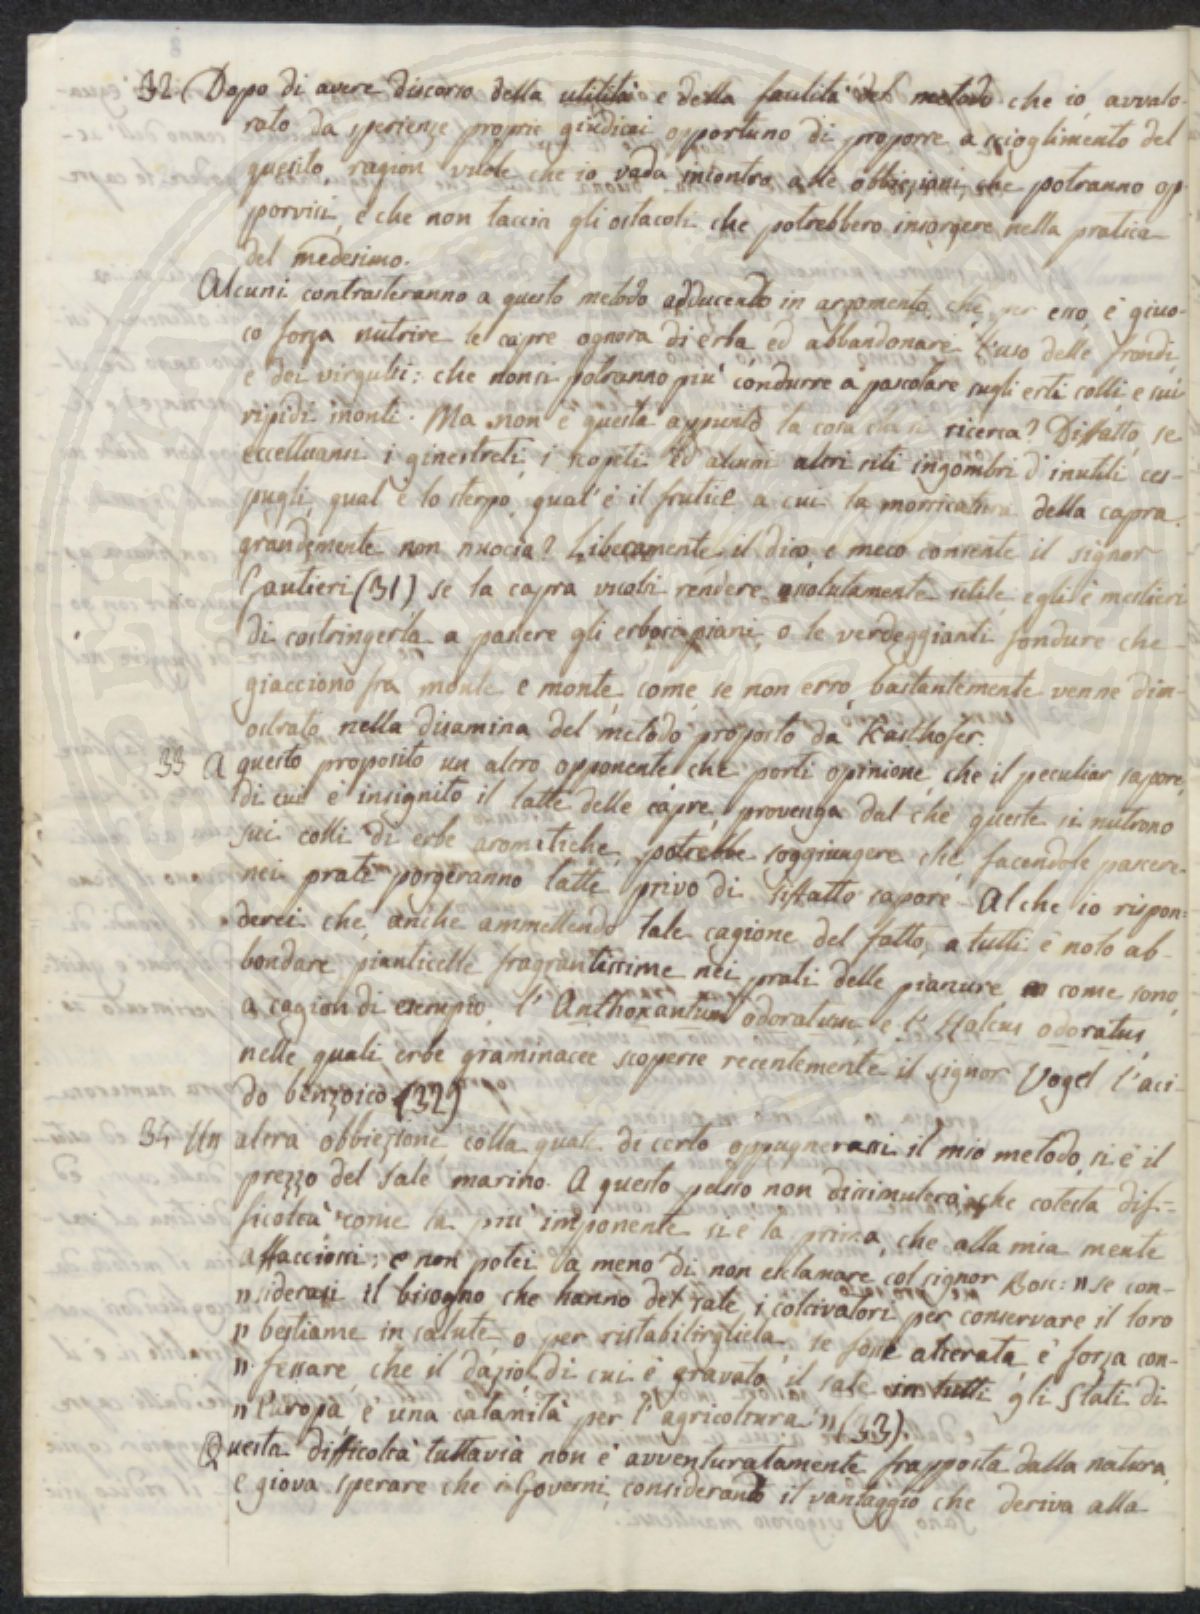 32 Dopo di avere discorso della utilità e della faulità del metodo che io avvalo-
rato da sperienze proprie giudicai opportuno di proporre a scioglimento del
quesito, ragion vuole che io vada incontro alle obbiezioni, che potranno op-
porvisi, e che non taccia gli ostacoli che potrebbero insorgere nella pratica
del medesimo.
Alcuni contrasteranno a questo metodo adducendo in argomento, che per esso è giuo-
co forza nutrire le capre ognora di erba ed abbandonare l'uso delle frondi,
e dei virgulti: che non si potranno più condurre a pascolare sugli erti colli e sui
ripidi monti. Ma non è questa appunto la cosa che si ricerca? Diffatto, se
eccettuansi i ginestreti, i scopeti ed alcuni altri siti ingombri d'inutili ces-
pugli, qual'è lo sterpo, qual'è il frutice a cui la morsicatura della capra
grandemente non nuocia? Liberamente il dico, e meco consente il signor
Gautieri (31) se la capra vuolsi rendere assolutamente utile, egli è mestieri
di costringerla a pascere gli erbosi piani, o le verdeggianti fondure che
giacciono fra monte e monte, come, se non erro, bastantemente venne dim-
ostrato nella disamina del metodo proposto da Kasthofer.
33 A questo proposito un altro opponente che porti opinione, che il peculiar sapore,
di cui è insignito il latte delle capre, provenga dal che queste si nutrono
sui colli di erbe aromatiche, potrebbe soggiungere che, facendole pascere
nei prati porgeranno latte privo di siffatto sapore. Al che io rispon-
derei che, anche ammettendo tale cagione del fatto, a tutti è noto ab-
bondare pianticelle fragrantissime nei prati delle pianure, come sono,
a cagion di esempio, l'Anthoxantum odoratum e l'Holcus odoratus,
nelle quali erbe graminacee scoperse recentemente il signor Vogel l'aci-
do benzoico (32)
34 Un altera obbiezione, colla quale di certo oppugnerassi il mio metodo, si è il
prezzo del sale marino. A questo passo non dissimulerò, che cotesta dif-
ficoltà come la più imponente si è la prima, che alla mia mente
affacciossi; e non potei a meno di non esclamare col signor Bosc: " se con-
" siderasi il bisogno che hanno del sale i coltivatori per conservare il loro
" bestiame in salute, o per ristabilirgliela, se fosse alterata, è forza con-
" fessare che il dazio di cui è gravato il sale in tutti gli Stati di
" Europa, è una calamità per l'agricoltura " (33).
Questa difficoltà tuttavia non è avventuratamente frapposta dalla natura,
e giova sperare che i Governi, considerando il vantaggio che deriva alla